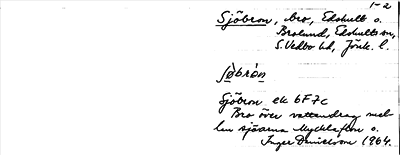 1-2
Sjöbron, bro, Edshult o.
Brolund, Edshults sn,
S. Vedbo hd, Jönk. l.
Sjöbron ek 6F7c
Bro över vattendrag mel-
lan sjöarna Mycklaflon o.
Inger Danielsson 1964.